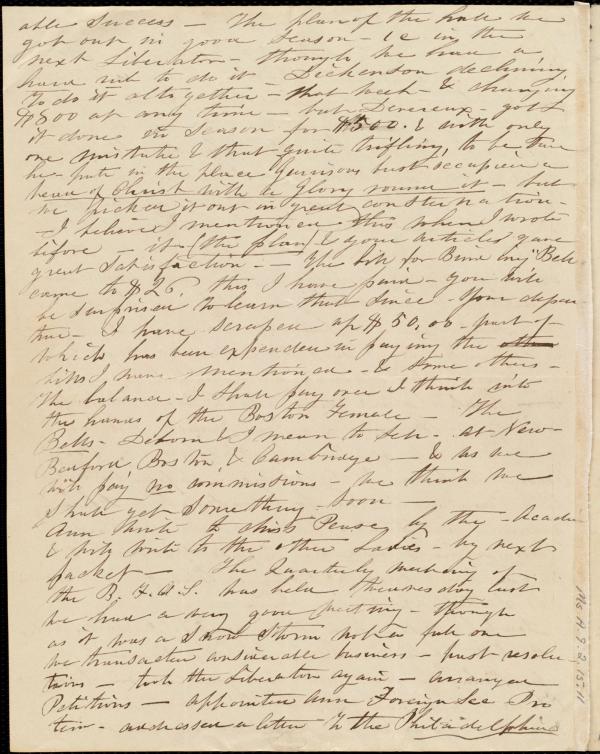 able success - The plan of the hall we
got out in good season - i e in the
next Liberator - though we had a
hard rub to do it - Dickenson declining
to do it altogether - that week - & charging
$800 at any time - but Devereux - got
it done in season for $500. & with only
one mistake & that quite trifling, to be sure
he put in the place Garrisons bust occupied a
head of Christ with a glory round it - but
we picked it out in great consternation -
- I believe I mentioned this when I wrote
before - it (the plan) & your articles gave
great satisfaction - The bill for Burd
came to $26, this I have paid - you will
be surprised to learn that since your depar
ture - I have scraped up $50,00 - part of
which has been expended in paying the
bills I have mentioned - & some others -
The balance - I shall pay over I think into
the hands of the Boston Female - The
Bells - Deborah & I mean to sell - at New
Bedford, Boston, & Cambridge - & as we
will pay no commissions - we think we
shall get something soon -
Ann wrote to Miss Pease, by the - Acadia
& will write to the other Ladies - by next
packet - The Quarterly meeting of
the B. F. A. S. was held Wednesday last
we had a very good meeting - though
as it was a snow storm not a full one
we transacted considerable business - past resolu
tions - took the Liberator again - arranged
Petitions - appointed Ann Foreign Sec Pro
tem - addressed a letter to the Philadelphia
Ms. A. 9. 2. 15. 11